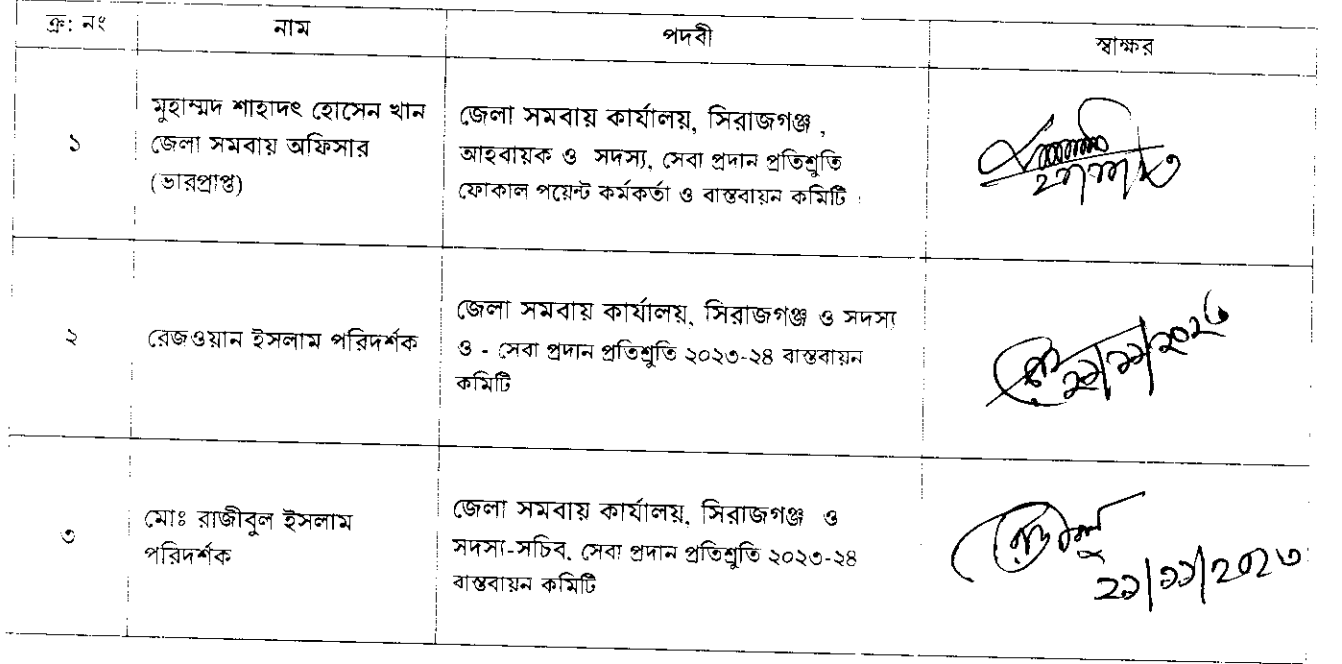 ক্র: নং নাম পদবী স্বাক্ষর
১
মুহাম্মদ শাহাদৎ হোসেন খান
জেলা সমবায় অফিসার
(ভারপ্রাপ্ত)
জেলা সমবায় কার্যালয়, সিরাজগঞ্জ ,
আহবায়ক ও সদস্য, সেবা প্রদান প্রতিশ্রুতি
ফোকাল পয়েন্ট কর্মকর্তা ও বাস্তবায়ন কমিটি
২
রেজওয়ান ইসলাম পরিদর্শক
জেলা সমবায় কার্যালয়, সিরাজগঞ্জ ও সদস্য
ও - সেবা প্রদান প্রতিশ্রুতি ২০২৩-২৪ বাস্তবায়ন
কমিটি
২১/১১/২০২৩
৩
মোঃ রাজীবুল ইসলাম
পরিদর্শক
জেলা সমবায় কার্যালয়, সিরাজগঞ্জ ও
সদস্য-সচিব, সেবা প্রদান প্রতিশ্রুতি ২০২৩-২৪
বাস্তবায়ন কমিটি
২১/১১/২০২৩